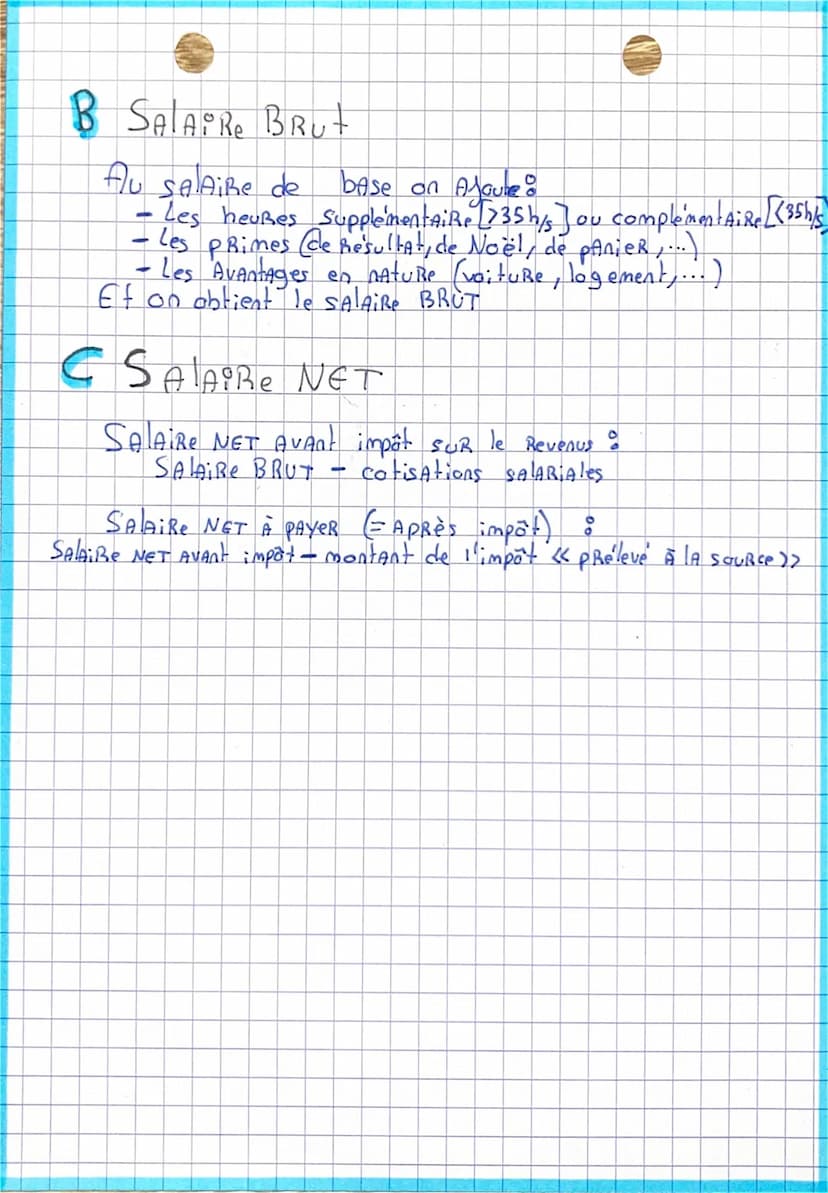 B Salaire Brut
Au salaire de base on Ajoute :
- Les heures supplémentaire [>35h/s] ou complémentaire [<35h/s]
- Les primes (de Résultat, de Noël, de panier, ...)
- Les Avantages en nature (voiture, logement, ...)
Et on obtient le salaire BRUT
C Salaire NET
Salaire NET avant impôt sur le Revenus :
Salaire BRUT - cotisations salariales
Salaire NET à payer (= Après impôt) :
Salaire NET avant impôt - montant de l'impôt << prélevé à la source >>